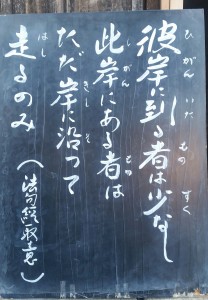 彼岸に到る者は少なし
ひがん いた もの すく
此岸にある者は
しがん もの
ただ岸に沿って
きし そ
走るのみ（法句経取意）
はし